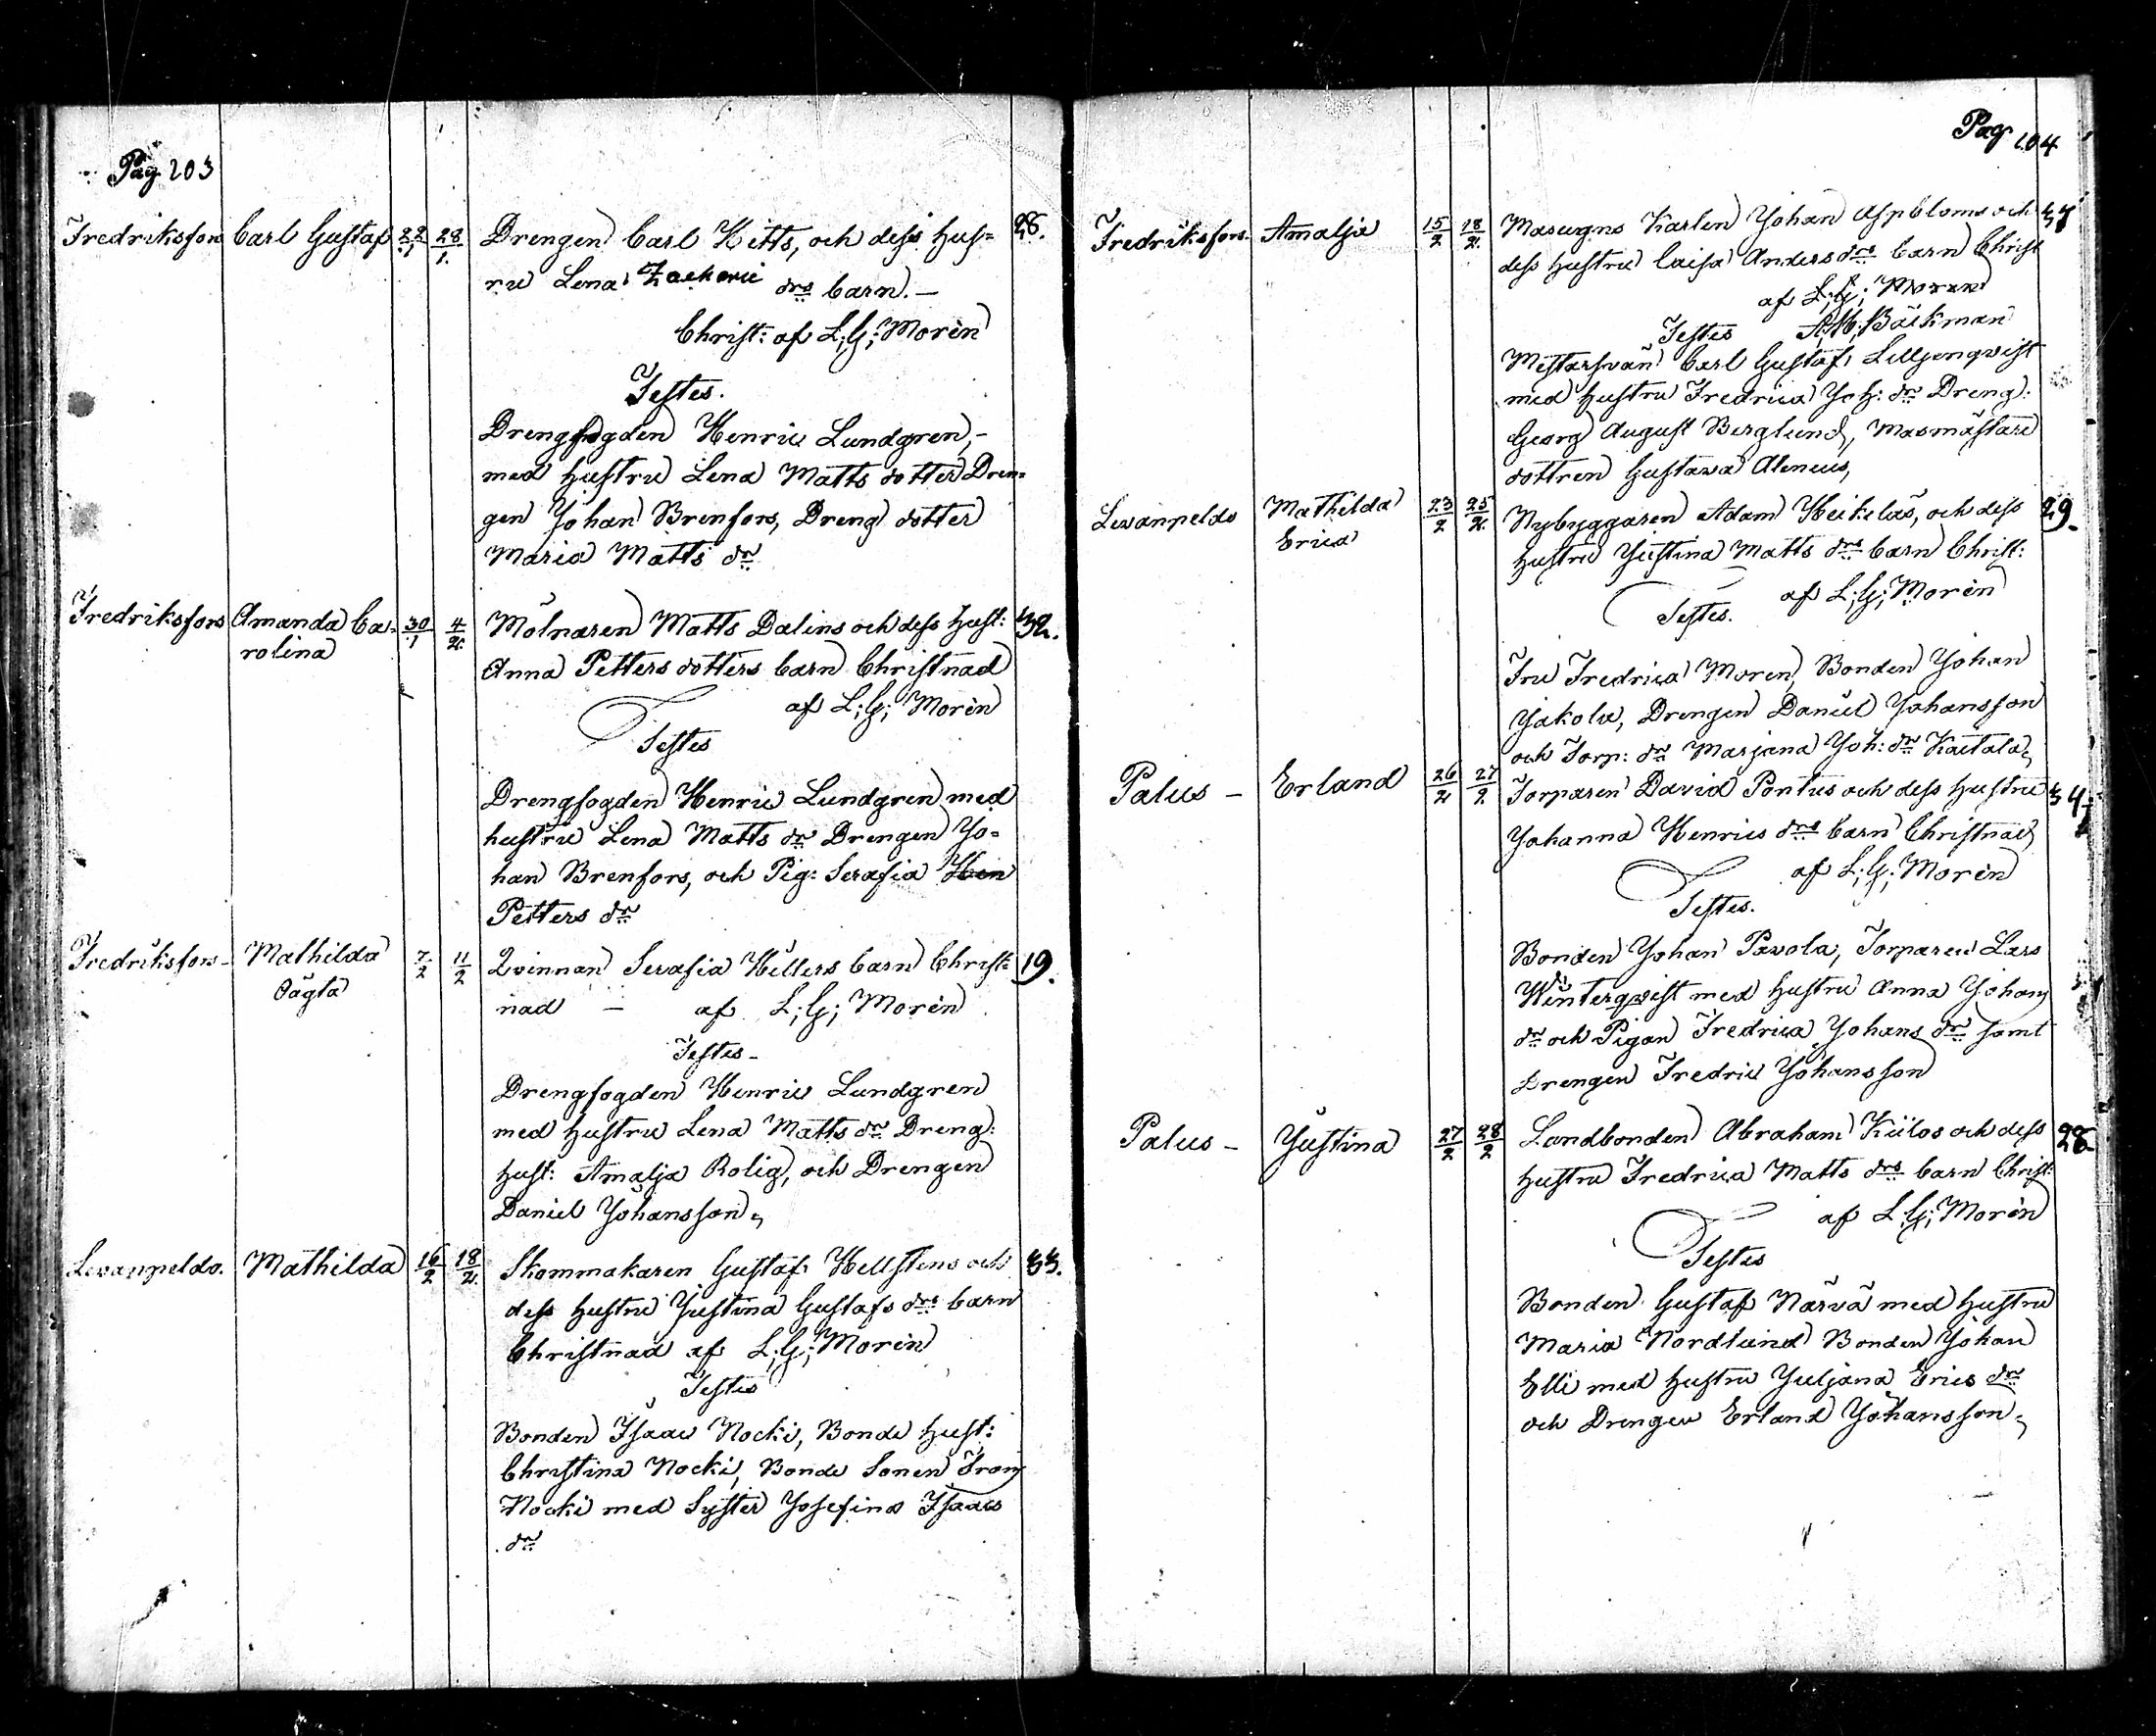 Pag. 203
Fredriksfors Carl Gustaf 28/1 28/1. Drengen Carl Kitts, och dess Hus= 28.
ru Lena Zacheri drs barn. —
Christ: af L; G; Morèn
Testes.
Drengfogden Henric Lundgren, —
med Hustru Lena Matts dotter Dren=
gen Johan Brenfors, Dreng dotter
Maria Matts dr
Fredriksfors Amanda Ca= 30/1 4/2. Mölnaren Matts Dalins och dess Hust: 32.
rolina Anna Petters dotters barn Christnad
af L; G; Morèn
Testes
Drengfogden Henric Lundgren med
hustru Lena Matts dr Drengen Jo=
han Brenfors, och Pig: Serafia Hen
Petters dr
Fredriksfors — Mathilda 7/2 11/2 Qvinnan Serafia Hellers barn Christ= 19.
nad — af L; G; Morèn
Testes —
Drengfogden Henric Lundgren
med Hustru Lena Matts dr Dreng:
Hust: Amalja Rolig, och Drengen
Daniel Johansson,
Levanpeldo. Mathilda 16/2 18/2. Skommakaren Gustaf Hellstens och 33.
dess Hustru Justina Gustafs drs barn
Christnad af L; G; Morèn
Testes
Bonden Isaac Nocki, Bonde Hust:
Christina Nocki, Bonde Sonen Frans
Nocki med Syster Josefina Isaacs
dr
Pag. 104
Fredriksfors. Amalja 15/2 18/2. Masugns Karlen Johan Aspbloms och
dess Hustru Caisa Anders drs barn Christ
af L; G; Moren
Testes A; M; Bäckman
Mestersvän Carl Gustaf Liljenqvist
med Hustru Fredrica Joh: dr Dreng:
Georg August Berglund, Masmästare
dottren Gustava Aleneus,
Levanpeldo Mathilda 23/2 25/2. Nybyggaren Adam Heikelas, och dess 29.
Erica Hustru Justina Matts drs barn Christ:
af L; G; Morèn
Testes.
Fru Fredrica Moren, Bonden Johan
Jakola, Drengen Daniel Johansson
och Torp: dr Marjana Joh: dr Kaitala,
Palus — Erland 26/2 27/2. Torparen David Pontus och dess Hustru 34.
Johanna Henrics drs barn Christnad
af L; G; Morèn
Testes.
Bonden Johan Pavola, Torparen Lars
Winterqvist med Hustru Anna Johans
dr och Pigan Fredrica Johans dr samt
Drengen Fredric Johansson
Palus — Justina 27/2 28/2 Landbonden Abraham Kiilos och dess 28.
Hustru Fredrica Matts drs barn Christ:
af L; G; Morèn
Testes
Bonden Gustaf Närvä med Hustru
Maria Nordlund Bonden Johan
Elli med Hustru Juljana Erics dr
och Drengen Erland Johansson,